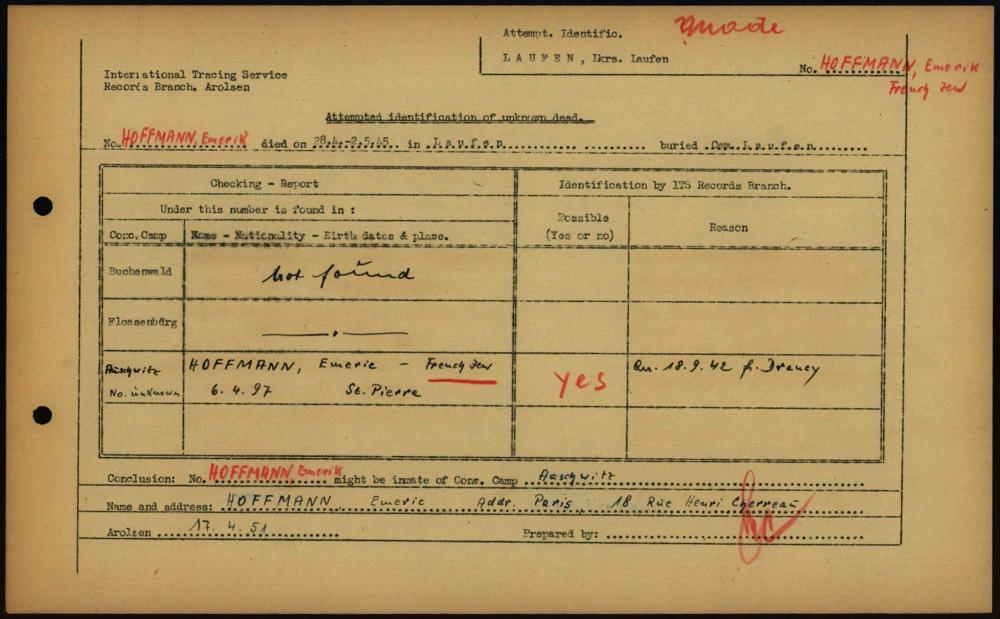 Attempt. Identific. made
LAUFEN, Lkrs. Laufen
No. HOFFMANN, Emerik
French Jew
International Tracing Service
Records Branch, Arolsen
Attempted identification of unknown dead.
No. HOFFMANN, Emerik died on 28.4.-2.5.45. in Laufen buried Cem. Laufen
Checking - Report
Identification by ITS Records Branch.
Under this number is found in :
Possible
(Yes or no)
Reason
Conc. Camp
Name - Nationality - Birth dates & place.
Buchenwald
not found
Flossenbürg
Auschwitz HOFFMANN, Emeric - French Jew
No. unknown 6.4.97 St. Pierre
yes
18.9.42 fr. Drancy
Conclusion: No. HOFFMANN, Emerik might be inmate of Conc. Camp Auschwitz
Name and address: HOFFMANN Emeric Addr. Paris, 18 Rue Henri
Arolsen 17.4.51 Prepared by: